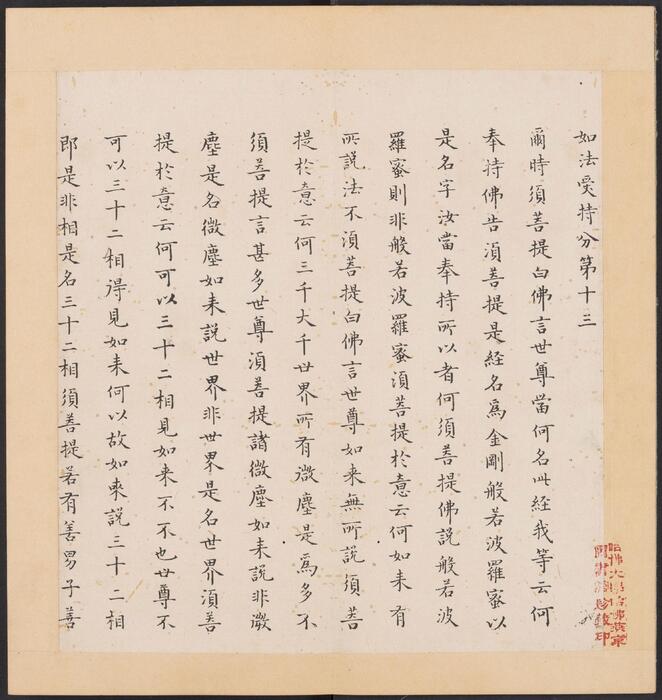 如法受持分第十三
爾時須菩提白佛言世尊當何名此経我等云何
奉持佛告須菩提是経名為金剛般若波羅蜜以
是名字汝當奉持所以者何須菩提佛說般若波
羅蜜則非般若波羅蜜須菩提於意云何如来有
所說法不須菩提白佛言世尊如来無所說須菩
提於意云何三千大千世界所有微塵是為多不
須菩提言甚多世尊須菩提諸微塵如来說非微
塵是名微塵如来說世界非世界是名世界須菩
提於意云何可以三十二相見如来不不也世尊不
可以三十二相得見如来何以故如来說三十二相
即是非相是名三十二相須菩提若有善男子善